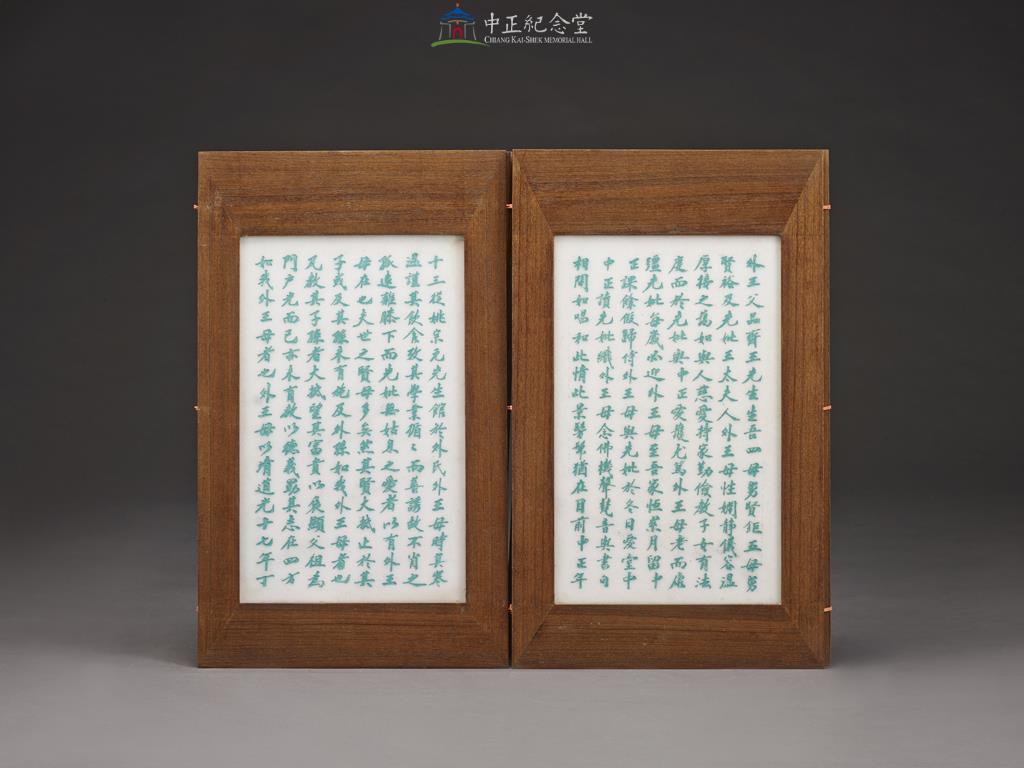 中正紀念堂
CHIANG KAI-SHEK MEMORIAL HALL
外王父品齋王先生生吾四母舅賢鉅五母舅
賢裕及先妣王太夫人外王母性嫻靜儀容溫
厚接之藹如與人慈愛持家勤儉教子女有法
度而於先妣與中正愛護尤篤外王母老而康
彊先妣每歲必迎外王母至吾家恒累月留中
正課餘假歸侍外王母與先妣於冬日愛堂中
中正讀先妣織外王母念佛機聲梵音與書句
相間如唱和此情此景髣髴猶在目前中正年
十三從姚宗元先生館於外氏外王母時其寒
溫謹其飲食攷其學業循循而善誘故不肖之
遠離膝下而先妣無姑息之愛者以有外王
母在也夫世之賢母多矣然其賢大抵止於其
子或及其孫未有施及外孫如我外王母者也
凡教其子孫者大抵望其富貴以良顯父祖為
門戶光而已亦未有教以德義勗其志在四方
如我外王母者也外王母以清道光十七年丁